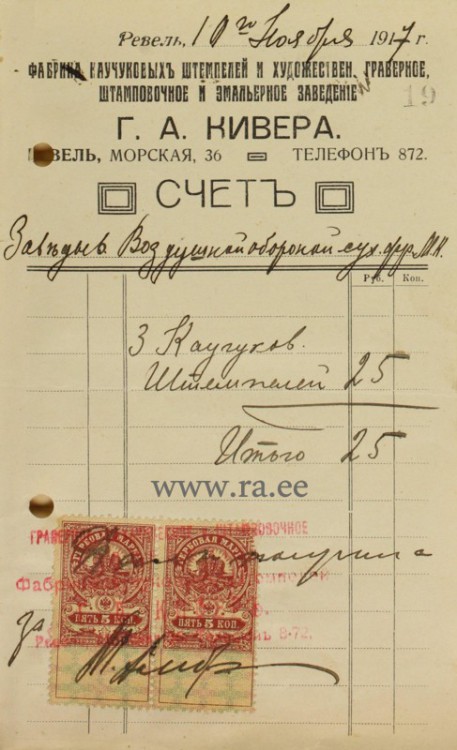 Ревель, 10го Ноября 1917 г.
ФАБРИКА КАУЧУКОВЫХЪ ШТЕМПЕЛЕЙ И ХУДОЖЕСТВЕН. ГРАВЕРНОЕ,
ШТАМПОВОЧНОЕ И ЭМАЛЬЕРНОЕ ЗАВЕДЕНІЕ
19
Г. А. КИВЕРА.
РЕВЕЛЬ, МОРСКАЯ, 36 ТЕЛЕФОНЪ 872.
СЧЕТЪ
Завѣдыв. Воздушной обороной сух. фр. М.К.
Руб. Коп.
3 Каучуков.
Штемпелей 25
Итого 25
www.ra.ee
ГРАВЕРНОЕ ШТАМПОВОЧНОЕ
ГЕРБОВАЯ МАРКА ГЕРБОВАЯ МАРКА
получила
Фабрика
5 5 5 5
ПЯТЬ КОП. ПЯТЬ КОП.
за
8-72.